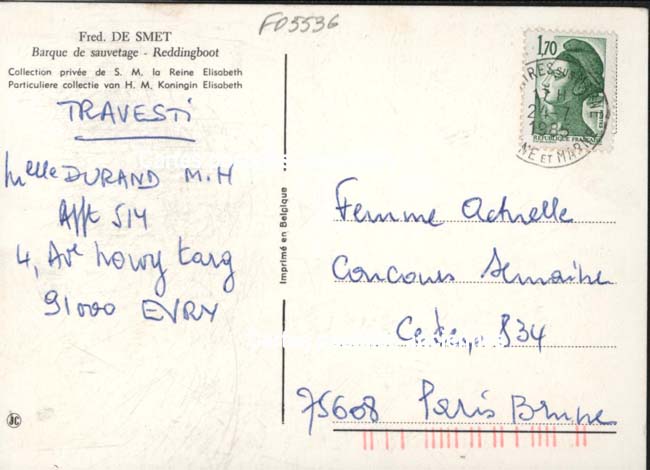 FD5536
Fred. DE SMET
Barque de sauvetage - Reddingboot
Collection privée de S. M. la Reine Elisabeth
Particuliere collectie van H. M. Koningin Elisabeth
TRAVESTI
Melle DURAND M.H
Appt 514
4, Ave
91000 EVRY
Imprimé en Belgique
1,70
17 H
24-7
1985
NE ET MARNE
REPUBLIQUE FRANCAISE
Femme Actuelle
Concours Semaine
Cedex 834
75608 Paris Brune
JC